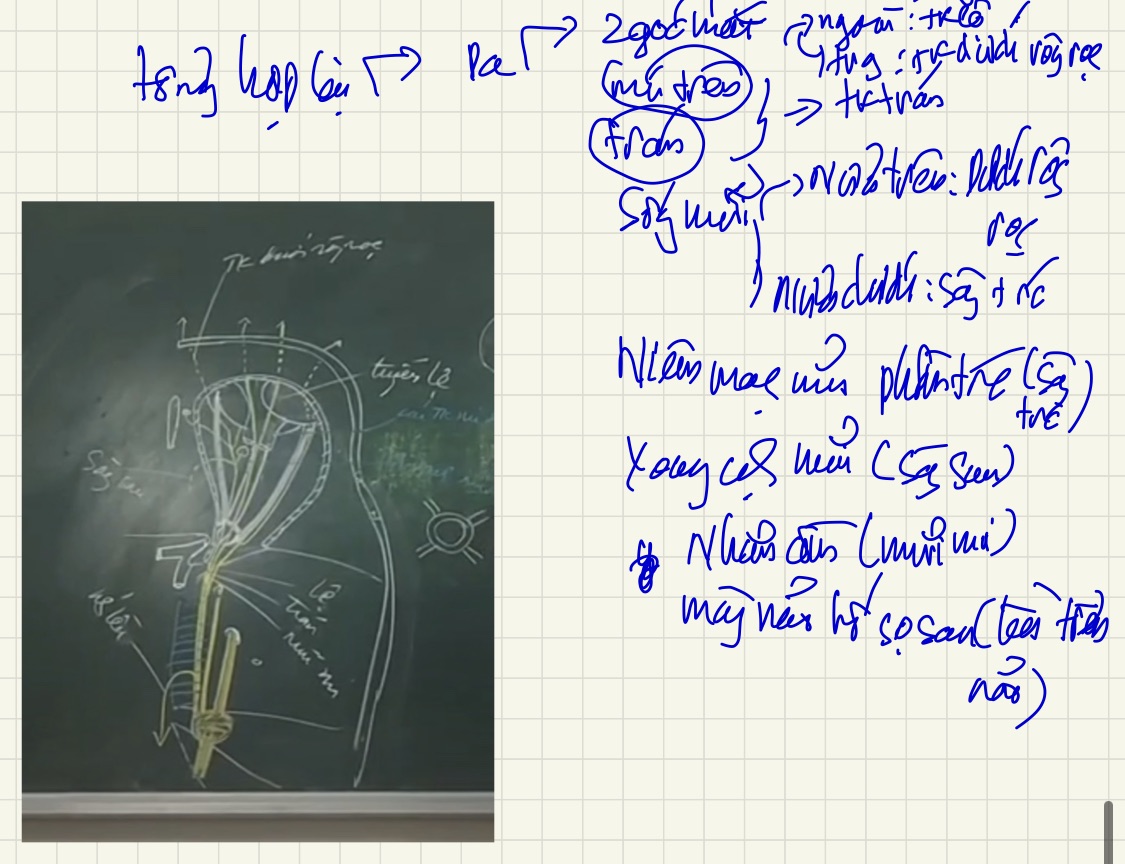 tổng hợp lại → Da → 2 góc mắt → ngoài: tk lệ
trg: tk dưới ròng rọc
mi trên
trán
→ tk trán
Sống mũi → Nửa trên: Dưới ròng
rọc
Nửa dưới: Sàng trc
Niêm mạc mũi phần trc (Sàng
trc)
Xoang cạnh mũi (Sàng Sau)
Nhãn cầu (mũi mi)
màng não hố sọ sau (lều tiểu
não)
TK dưới ròng rọc
tuyến lệ
Sàng sau
Lệ
Trán
Mũi mi